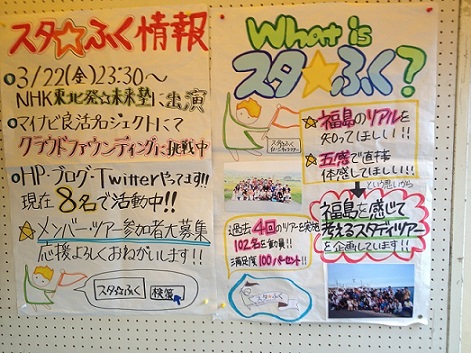 スタ☆ふく情報
3/22(金)23:30〜
NHK東北発☆未来塾に出演
マイナビ良活プロジェクトにて
クラウドファウンディングに挑戦中
HP・ブログ・Twitterやってます!!
現在8名で活動中!!
☆メンバー・ツアー参加者大募集
応援よろしくおねがいします!!
スタ☆ふく 検索
What is
スタ☆ふく?
☆福島のリアルを
知ってほしい!!
☆五感で直接
体感してほしい!!
という思いから
福島を感じて
考えるスタディツアー
を企画しています!!
過去4回のツアーを実施
102名を動員!!
満足度100パーセント!!
スタ☆ふく